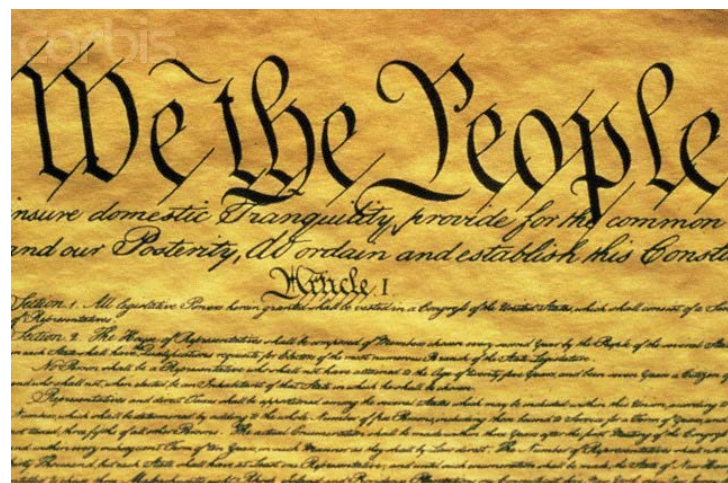 corbis
We the People
insure domestic Tranquility, provide for the common
and our Posterity, do ordain and establish this Const
Article. I.
Section. 1. All legislative Powers herein granted shall be vested in a Congress of the United States, which shall consist of a Se
of Representatives.
Section. 2. The House of Representatives shall be composed of Members chosen every second Year by the People of the several States
in each State shall have Qualifications requisite for Electors of the most numerous Branch of the State Legislature.
No Person shall be a Representative who shall not have attained to the Age of twenty five Years, and been seven Years a Citizen
and who shall not, when elected, be an Inhabitant of that State in which he shall be chosen.
Representatives and direct Taxes shall be apportioned among the several States which may be included within this Union, according
Numbers, which shall be determined by adding to the whole Number of free Persons, including those bound to Service for a Term of Years,
not taxed, three fifths of all other Persons. The actual Enumeration shall be made within three Years after the first Meeting of the Congress
and within every subsequent Term of ten Years, in such Manner as they shall by Law direct. The Number of Representatives shall not
thirty Thousand, but each State shall have at Least one Representative; and until such enumeration shall be made, the State of New Ham